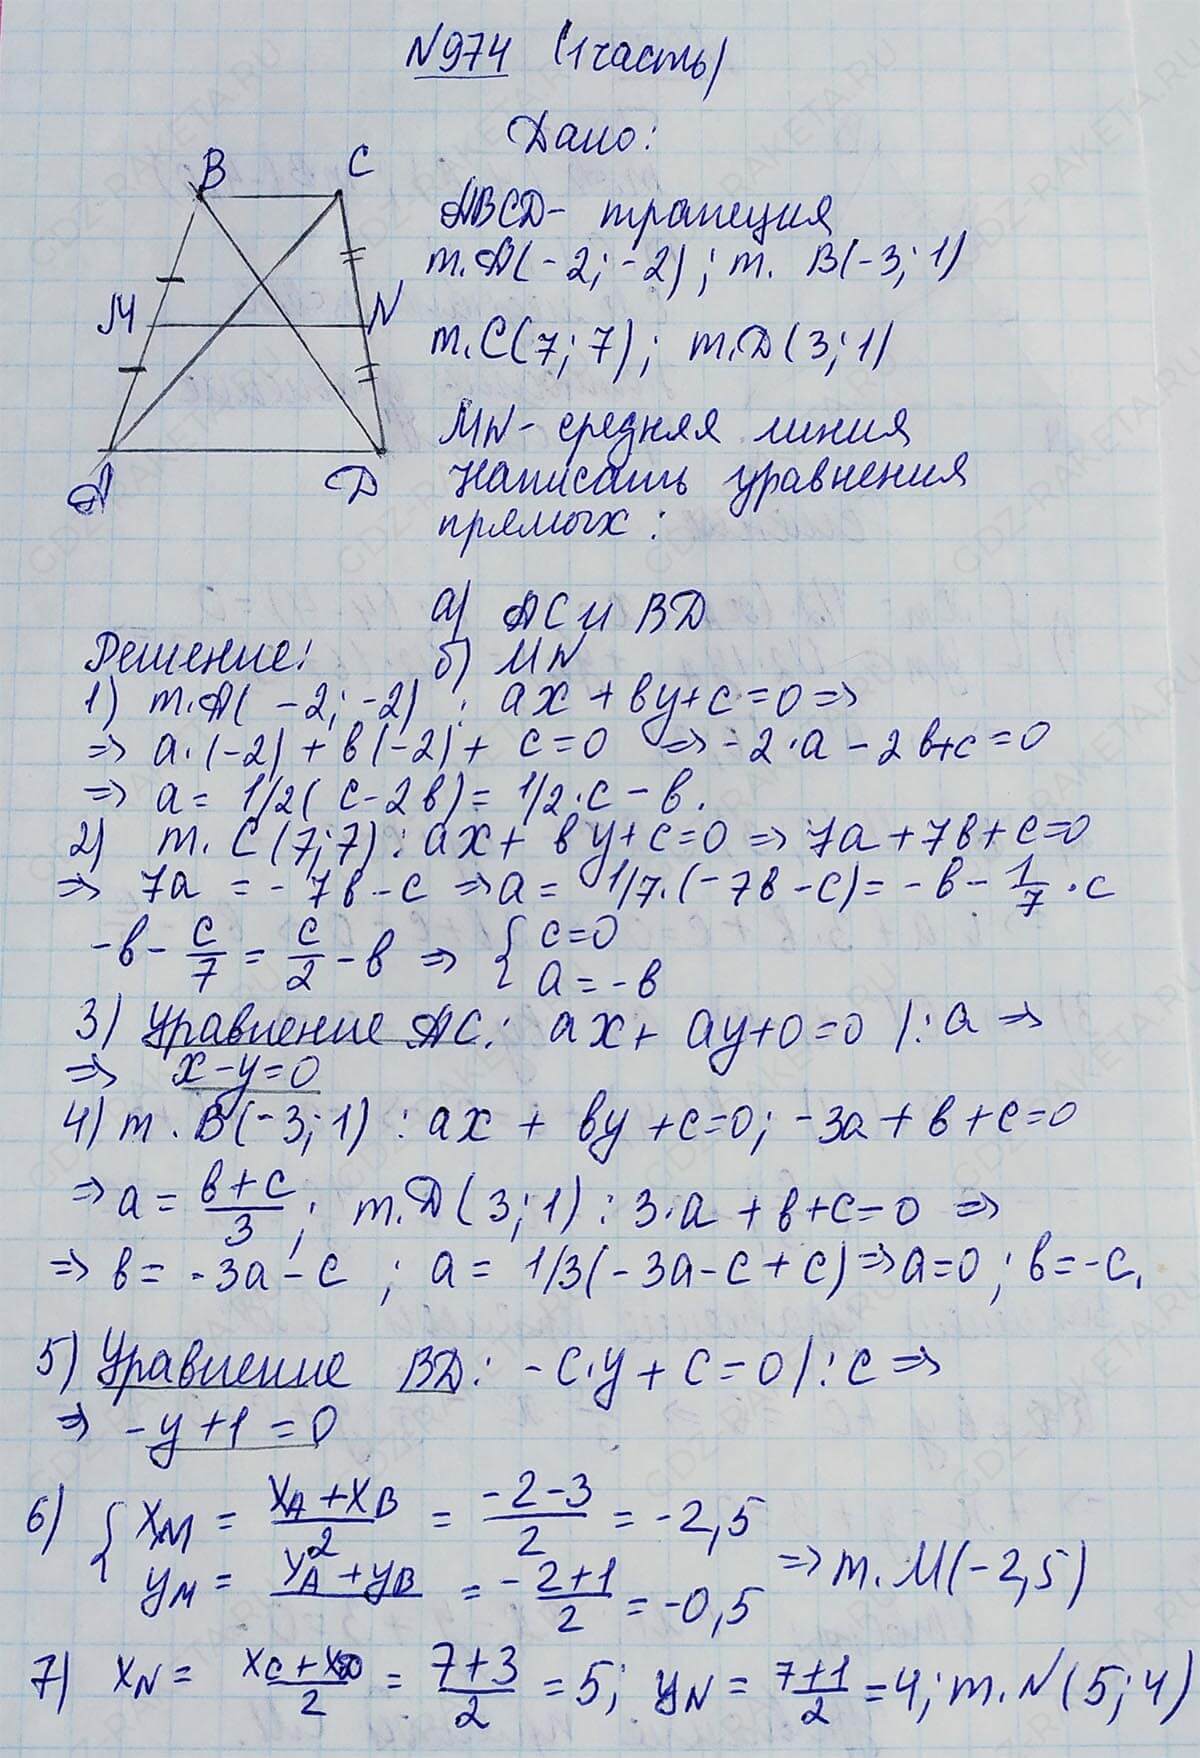 N974 (1 часть)
Дано:
B C
ABCD - трапеция
т. A(-2; -2); т. B(-3; 1)
M N
т. C(7; 7); т. D(3; 1)
MN - средняя линия
A D
Написать уравнения
прямых:
а) AC и BD
Решение: б) MN
1) т. A( -2; -2) : ax + by + c = 0 =>
=> a·(-2) + b(-2) + c = 0 => -2·a - 2b + c = 0
=> a = 1/2( c - 2b) = 1/2·c - b.
2) т. C (7; 7) : ax + by + c = 0 => 7a + 7b + c = 0
=> 7a = - 7b - c => a = 1/7·(-7b - c) = -b - 1/7 · c
-b - c/7 = c/2 - b => { c = 0
a = -b
3) Уравнение AC: ax + ay + 0 = 0 |: a =>
=> x - y = 0
4) т. B(-3; 1) : ax + by + c = 0; -3a + b + c = 0
=> a = b+c/3 ; т. D (3; 1) : 3·a + b + c = 0 =>
=> b = -3a - c ; a = 1/3(-3a - c + c) => a = 0 ; b = -c.
5) Уравнение BD: -c·y + c = 0 |: c =>
=> -y + 1 = 0
6) { xM = xA + xB/2 = -2-3/2 = -2,5
yM = yA + yB = -2+1/2 = -0,5 => т. M(-2,5)
7) xN = xC + xD/2 = 7+3/2 = 5; yN = 7+1/2 = 4; т. N(5; 4)
GDZ-RAKETA.RU